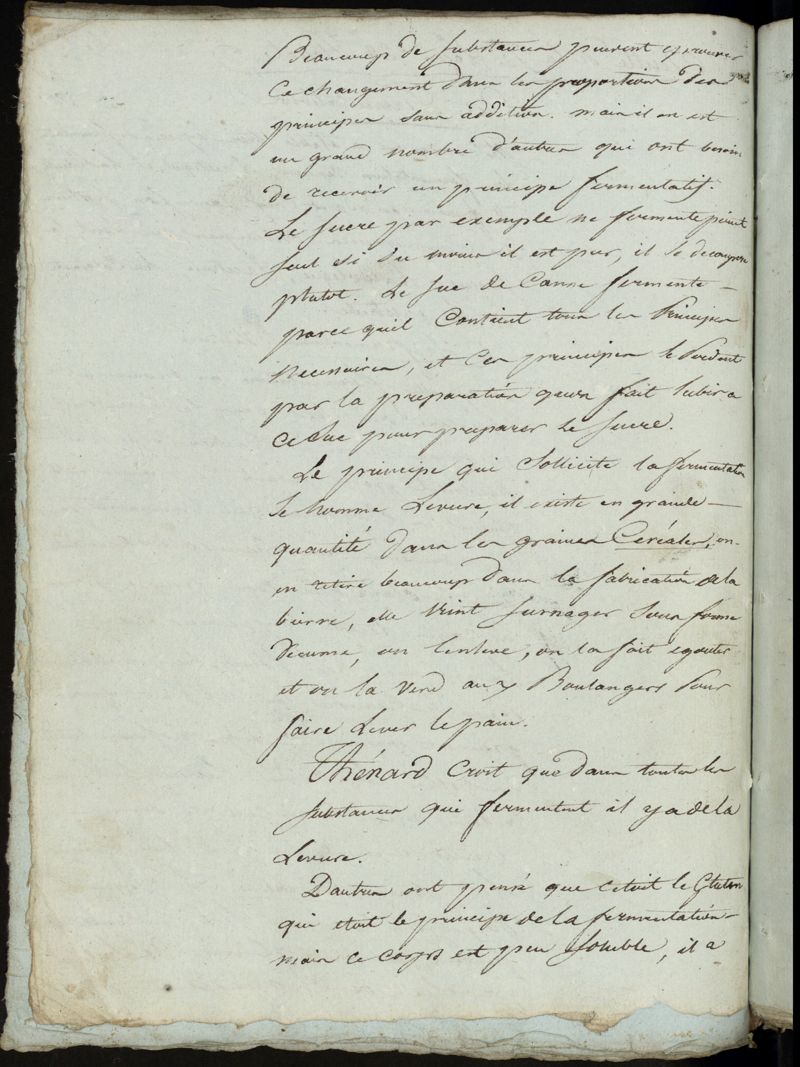 Beaucoup de substances peuvent eprouver
Ce changement dans les proportions des
principes sans addition. mais il en est
un grand nombre d'autres qui ont besoin
de recevoir un principe fermentatif.
Le sucre par exemple ne fermente point
seul si du moins il est pur, il se decompose
plutot. Le suc de Canne fermente
parce quil Contient tous les Principes
necessaires, et Ces principes se Perdent
par la preparation qu'on fait subir a
ce suc pour preparer le sucre.
Le principe qui sollicite la fermentation
se nomme Levure, il existe en grande
quantité dans les graines Ceréales, on
en retire beaucoup dans la fabrication de la
bierre, elle vint surnager sous forme
décume, on l'enleve, on la fait égouter
et on la vend aux Boulangers Pour
faire Lever le pain.
Thénard Croit que dans toutes les
substances qui fermentent il y a de la
Levure.
Dautres ont pensé que c'etoit le Gluten
qui etoit le principe de la fermentation
mais ce corps est peu soluble, il a